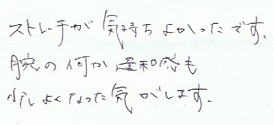 ストレッチが気持ちよかったです。
腕の何か違和感も
少しよくなった気がします。